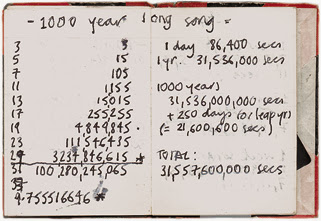 - 1000 year long song =
3 3
5 15
7 105
11 1155
13 15015
17 255255
19 4,849,845.
23 111546435
29 3237,846,615 *
31 100,280,245,065
37
9.755516646 *
1 day 86,400 secs
1 yr. 31,536,000 secs
1000 years
31,536,000,000 secs
+ 250 days (for leap yrs)
(= 21,600,000 secs)
TOTAL:
31,557,600,000 secs